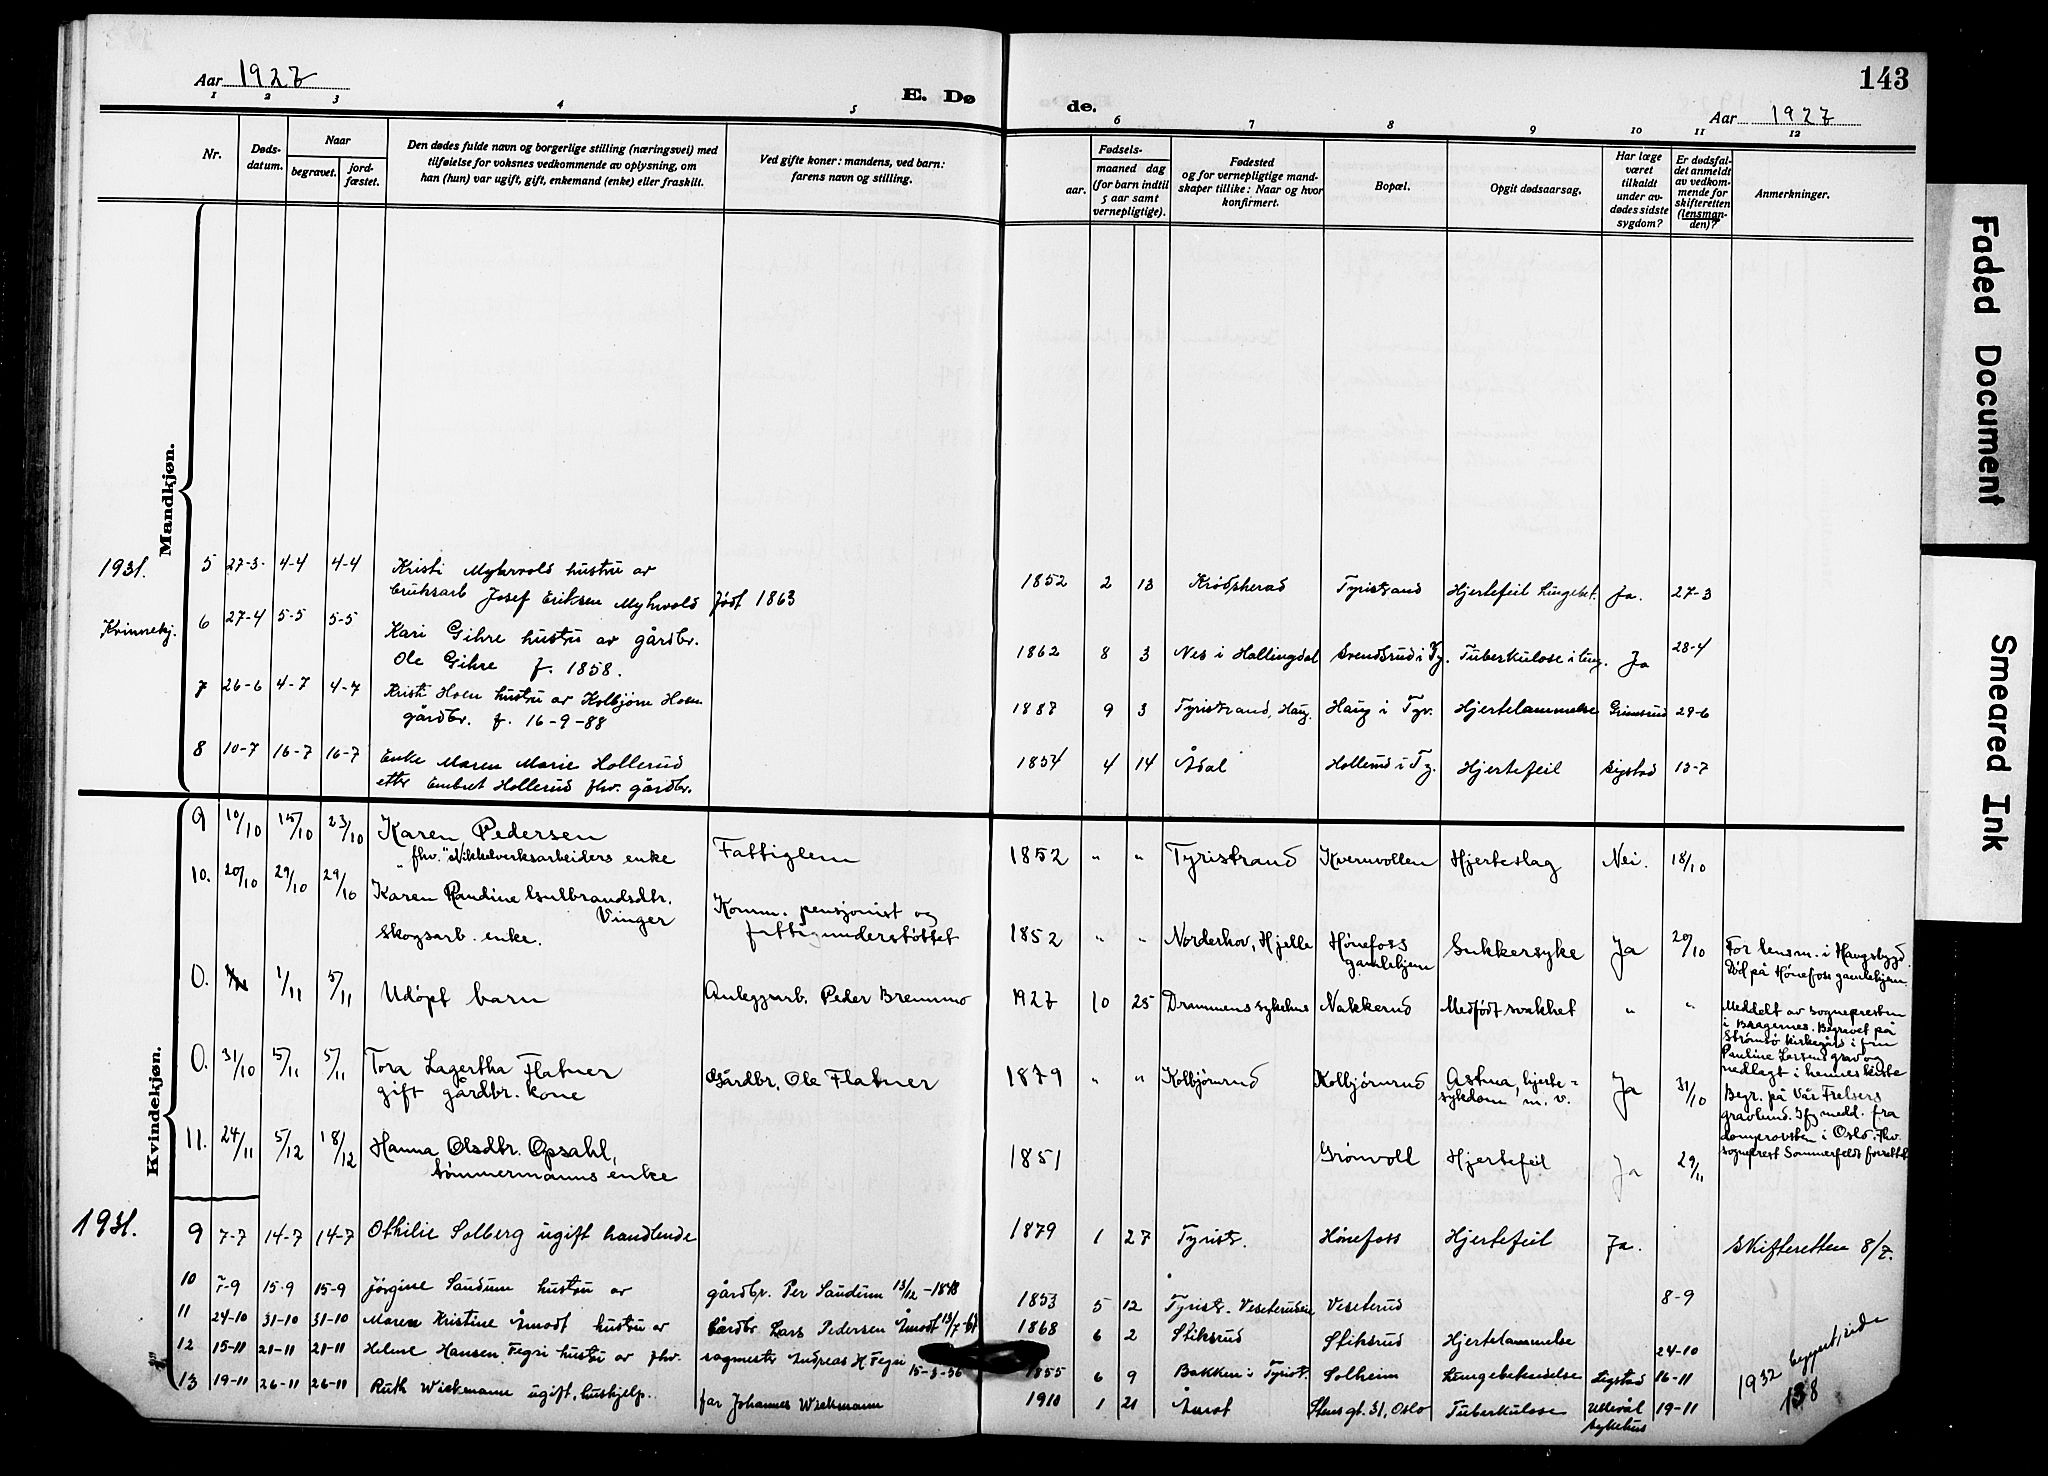 Aar 1927
E. Dø
de.
143
Aar 1927
1 2 3 4 5 6 7 8 9 10 11 12
Nr.
Døds-
datum.
Naar
begravet.
jord-
fæstet.
Den dødes fulde navn og borgerlige stilling (næringsvei) med
tilføielse for voksnes vedkommende av oplysning, om
han (hun) var ugift, gift, enkemand (enke) eller fraskilt.
Ved gifte koner: mandens, ved barn:
farens navn og stilling.
Fødsels-
aar.
maaned dag
(for barn indtil
5 aar samt
vernepligtige).
Fødested
og for vernepligtige mand-
skaper tillike: Naar og hvor
konfirmert.
Bopæl.
Opgit dødsaarsag.
Har læge
været
tilkaldt
under av-
dødes sidste
sygdom?
Er dødsfal-
det anmeldt
av vedkom-
mende for
skifteretten
(lensman-
den)?
Anmerkninger.
Mandkjøn.
1931.
Kvinnekj.
5 27-3- 4-4 4-4 Kristi Myhrvold hustru av
bruksarb Josef Eriksen Myhrvold født 1863
1852 2 13 Krødsherad Tyristrand Hjertefeil Lungebet. Ja. 27-3
6 27-4 5-5 5-5 Kari Gihre hustru av gårdbr.
Ole Gihre f. 1858.
1862 8 3 Nes i Hallingdal Svendsrud i Ty. Tuberkulose i lung. Ja 28-4
7 26-6 4-7 4-7 Kristi Hoen hustru av Kolbjørn Hoen
gårdbr. f. 16-9-88
1887 9 3 Tyristrand, Haug. Haug i Tyr. Hjertelammelse Grimsrud 29-6
8 10-7 16-7 16-7 Enke Maren Marie Hollerud
etter Embret Hollerud fhv. gårdbr.
1854 4 14 Ådal Hollerud i Ty. Hjertefeil Sigstad 13-7
Kvindekjøn.
9 10/10 15/10 23/10 Karen Pedersen
fhv. Nikkelverksarbeiders enke Fattiglem
1852 " " Tyristrand Kvernvollen Hjerteslag Nei. 18/10
10. 20/10 29/10 29/10 Karen Randine Gulbrandsdtr.
Vinger
skogsarb. enke.
Komm. pensjonist og
fattigunderstøttet
1852 " " Norderhov, Hjelle Hønefoss
gamlehjem
Sukkersyke Ja 20/10 For lensm. i Haugsbygd.
Død på Hønefoss gamlehjem
0. 1/11 5/11 Udøpt barn Anleggsarb. Peder Bremmo
1927 10 25 Drammens sykehus Nakkerud Medfødt svakhet " " Meddelt av sognepresten
i Bragernes. Begravet på
Strømsø kirkegård i fru
Pauline Larsens grav og
nedlagt i hennes kiste
0. 31/10 5/11 5/11 Tora Lagertha Flatner
gift gårdbr. kone
Gårdbr. Ole Flatner
1879 " " Kolbjörnrud Kolbjörnrud Astma, hjerte-
sykdom, m. v.
Ja 31/10 Begr. på Vår Frelsers
gravlund. Ifg medd. fra
domprovsten i Oslo. Fhv.
sogneprest Sommerfeldt forrettet
11. 24/11 5/12 18/12 Hanna Olsdtr. Opsahl,
tømmermanns enke
1851 Grönvoll Hjertefeil Ja 29/11
1931.
9 7-7 14-7 14-7 Othilie Solberg ugift handlende
1879 1 27 Tyristr. Hønefoss Hjertefeil Ja. Skifteretten 8/7.
10 7-9 15-9 15-9 Jørgine Saudum hustru av gårdbr. Per Saudum 13/12-1848
1853 5 12 Tyristr. Veseterudeie Veseterud 8-9
11 24-10 31-10 31-10 Maren Kristine Åmodt hustru av Gårdbr Lars Pedersen Åmodt 13/7-61
1868 6 2 Stiksrud Stiksrud Hjertelammelse 24-10
12 15-11 21-11 21-11 Helene Hansen Fegri hustru av fhv. sagmester Andreas H Fegri
15-8-56
1855 6 9 Bakken i Tyristr. Solheim Lungebetendelse Sigstad 16-11
13 19-11 26-11 26-11 Ruth Wickmann ugift, hushjelp. far Johannes Wickmann
1910 1 21 Åmot Stensgt. 31, Oslo Tuberkulose Ullevål
sykehus
19-11
1932 side
138
Faded Document
Smeared Ink